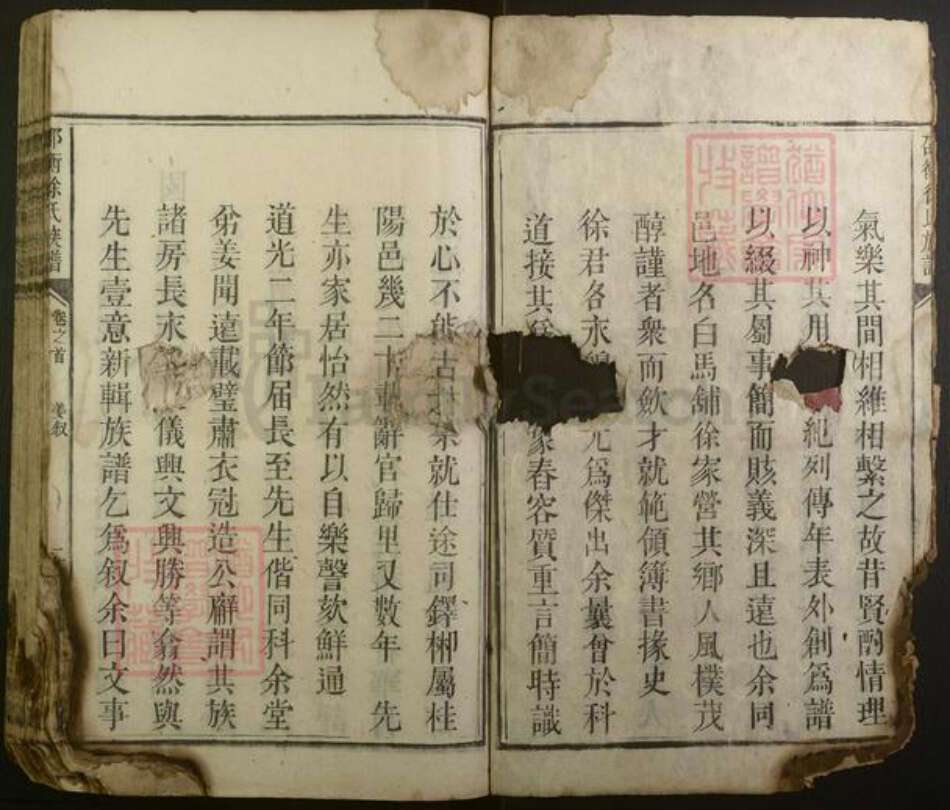 氣樂其間相維相繫之故昔賢酌情理
以神其用 紀列傳年表外創爲譜
以綴其屬事簡而賅義深且遠也余同
邑地名白馬舖徐家營其鄉人風樸茂
醇謹者衆而斂才就範領簿書掾史
徐君各永 尤爲傑出余曩曾於科
道接其 春容質重言簡時識
於心不 古 就仕途司鐸郴屬桂
陽邑幾二十載辭官歸里又數年 先
生亦家居怡然有以自樂謦欬鮮通
道光二年節届長至先生偕同科余堂
弟姜聞遠載璧肅衣冠造公廨謂其族
諸房長永 儀與文興勝等翕然與
先生壹意新輯族譜乞爲叙余曰文事
邵衡徐氏族譜
卷之首
姜叙
邵衡徐氏族譜